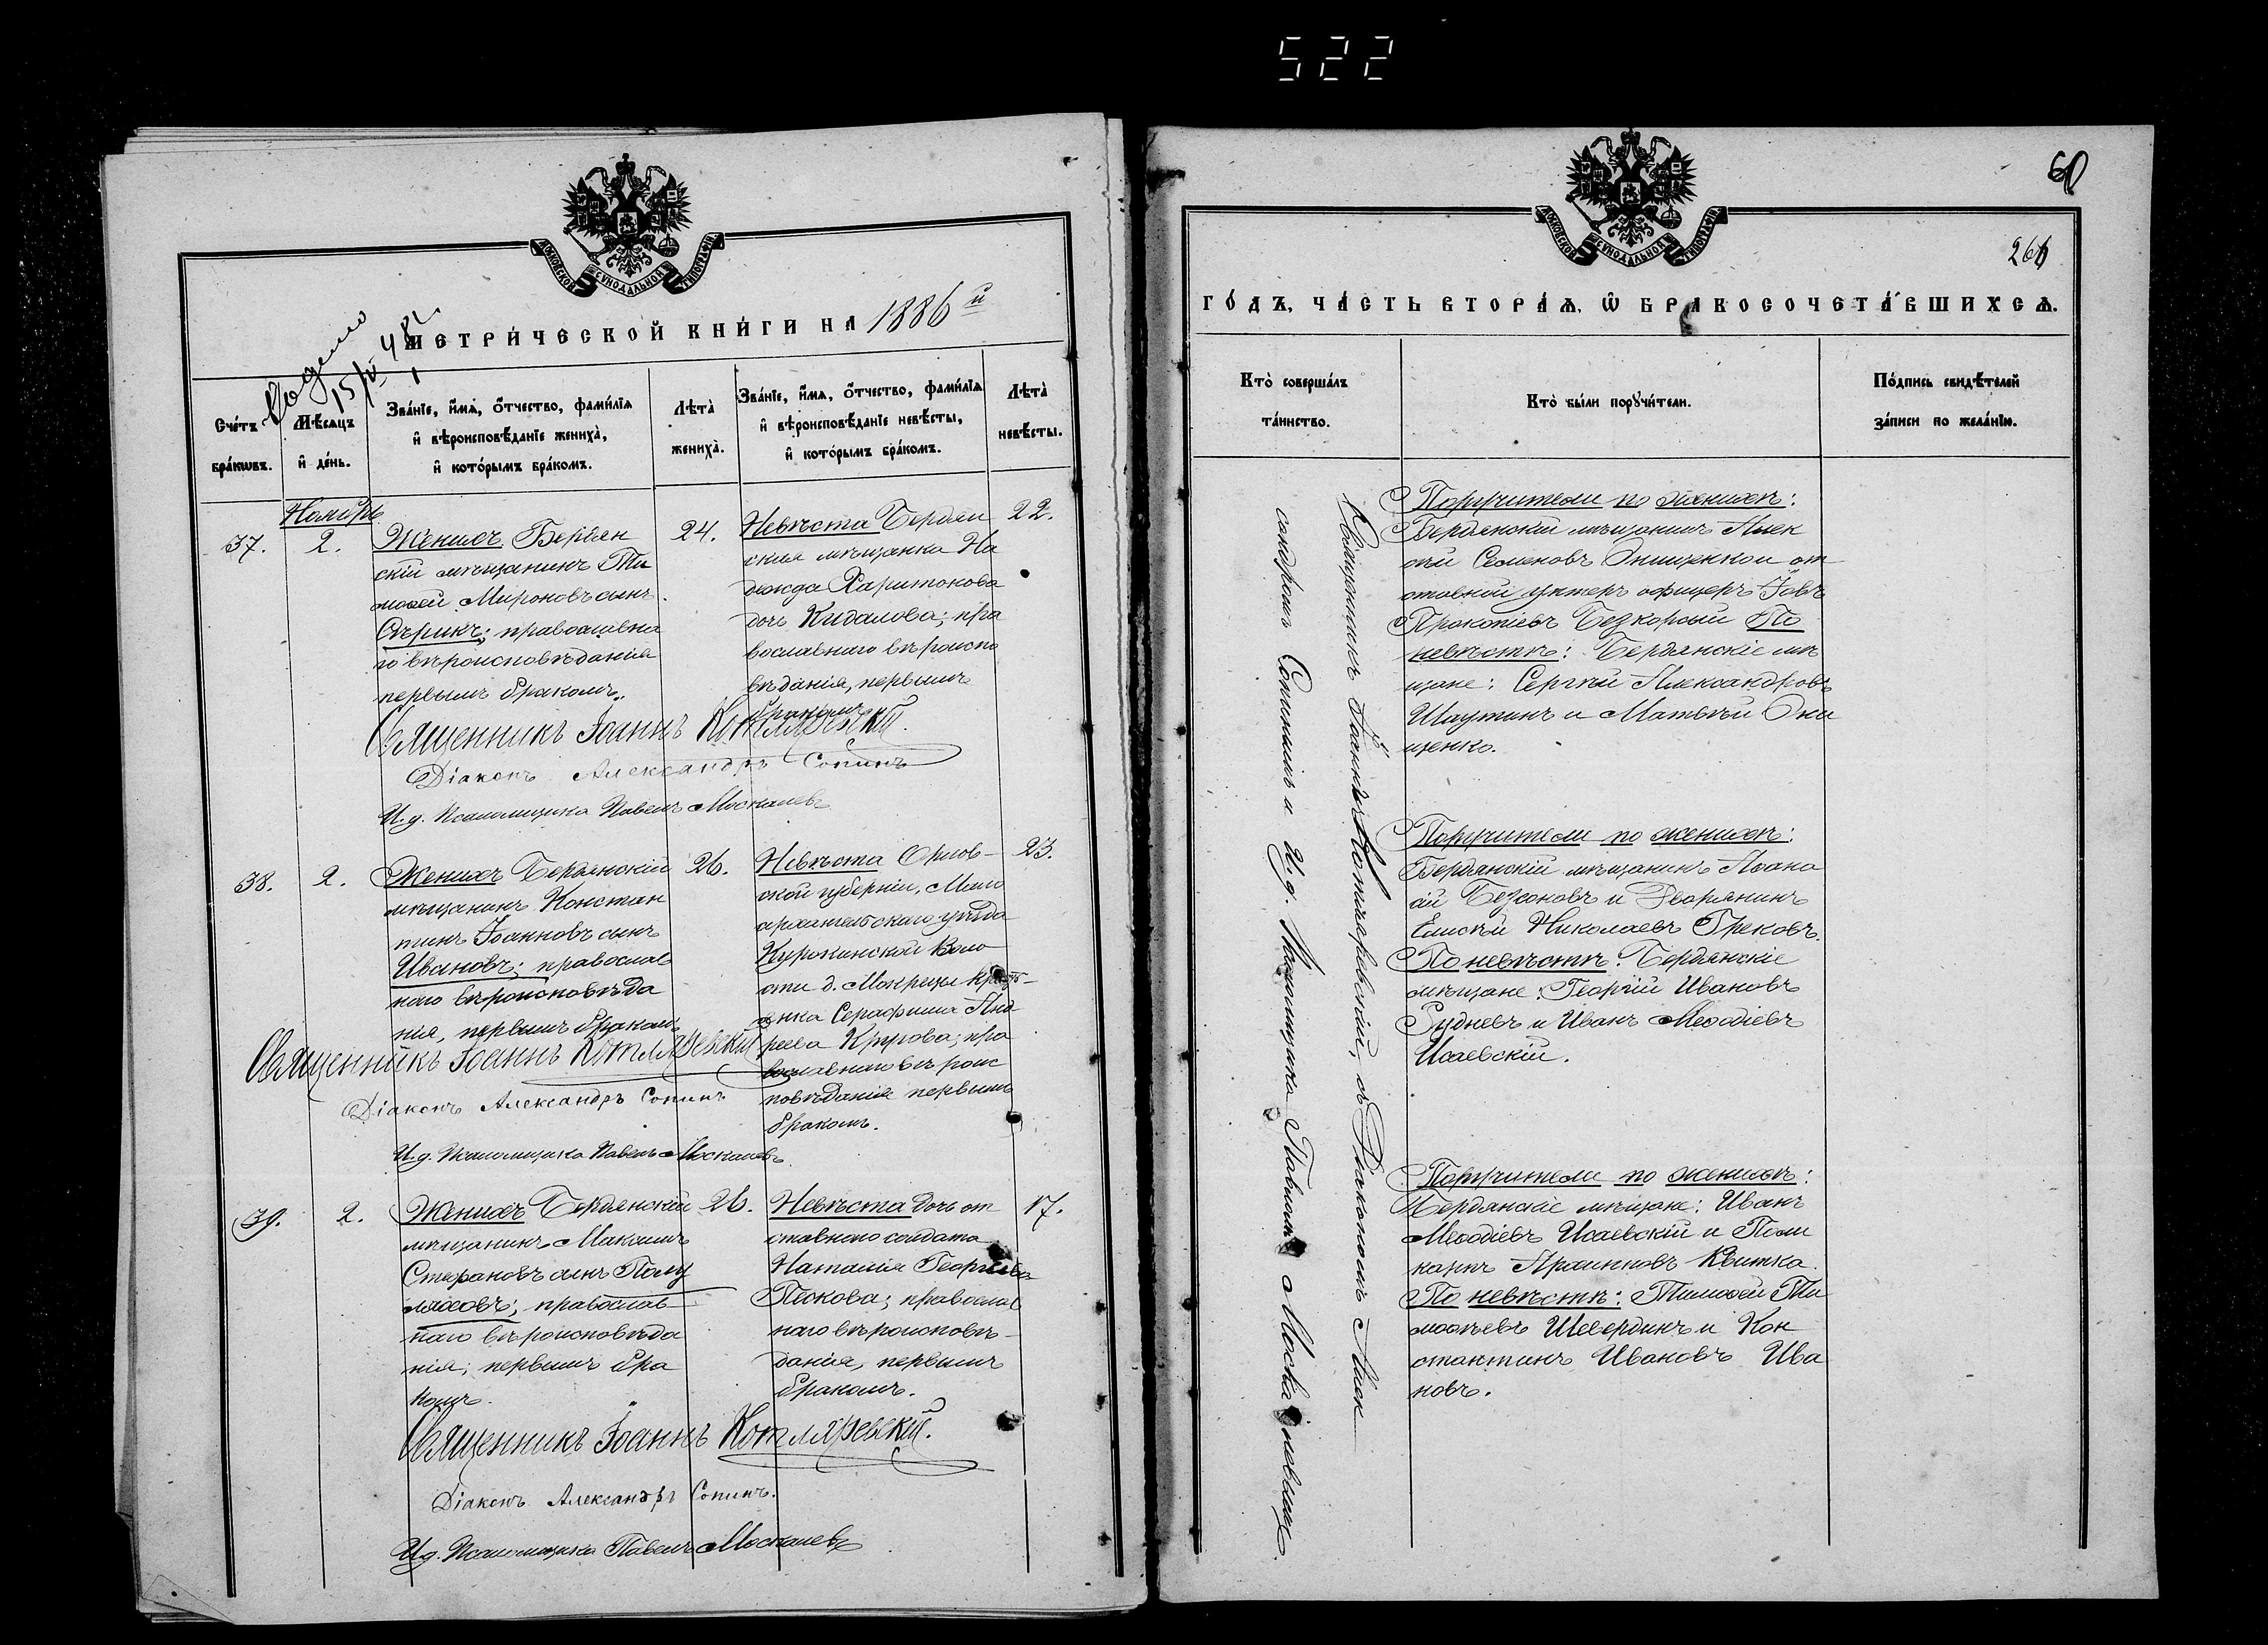 522
МОСКОВСКОЙ СѴНОДАЛЬНОЙ ТИПОГРАФІИ
МЕТРИ́ЧЕСКОЙ КНИ́ГИ НА 1886 й
Сче́тъ бра́кѡвъ.
Мѣ́сяцъ и҆ де́нь.
Зва́нїе, и҆́мѧ, ѻ҆́тчество, фами́лїѧ
и҆ вѣроисповѣ́данїе жениха̀,
и҆ кото́рымъ бра́комъ.
Лѣта̀
жениха̀.
Зва́нїе, и҆́мѧ, ѻ҆́тчество, фами́лїѧ
и҆ вѣроисповѣ́данїе невѣ́сты,
и҆ кото́рымъ бра́комъ.
Лѣта̀
невѣ́сты.
Ноябрь
37.
2.
Женихъ Бердян
скій мѣщанинъ Ти
моѳей Мироновъ сынъ
Сѣрикъ; православна
го вѣроисповѣданія
первымъ бракомъ.
24.
Невѣста Бердян
ская мѣщанка На
дежда Харитонова
дочь Кидалова; пра
вославнаго вѣроиспо
вѣданія, первымъ
бракомъ
22.
Священникъ Іоаннъ Котляревскій.
Діаконъ Александръ Сопинъ
И. д. Псаломщика Павелъ Москалевъ
38.
2.
Женихъ Бердянскій
мѣщанинъ Констан
тинъ Іоанновъ сынъ
Ивановъ; православ
наго вѣроисповѣда
нія, первымъ бракомъ
26.
Невѣста Орлов-
ской губерніи, Мало
архангельскаго уѣзда
Куракинской воло
сти д. Мокрецы крест-
янка Серафима Анд
реева Курова; пра
вославнаго вѣроис
повѣданія первымъ
бракомъ.
23.
Священникъ Іоаннъ Котляревскій
Діаконъ Александръ Сопинъ
И. д. Псаломщика Павелъ Москалевъ
39.
2.
Женихъ Бердянскій
мѣщанинъ Максимъ
Стефановъ сынъ Полу
ляховъ; православ
наго вѣроисповѣда
нія; первымъ бра
комъ.
26.
Невѣста дочь от
ставнаго солдата
Наталія Георгіева
Пескова; православ
наго вѣроисповѣ-
данія, первымъ
бракомъ.
17.
Священникъ Іоаннъ Котляревскій.
Діаконъ Александръ Сопинъ.
И д. Псаломщика Павелъ Москалевъ
МОСКОВСКОЙ СѴНОДАЛЬНОЙ ТИПОГРАФІИ
ГО́ДЪ, ЧА́СТЬ ВТОРА́Ѧ, Ѡ҆ БРАКОСОЧЕТА́ВШИХСѦ.
Кто̀ соверша́лъ
та́инство.
Кто̀ бы́ли порꙋчи́тели.
По́дпись свидѣ́телей
за́писи по жела́нїю.
Священникъ Іоаннъ Котляревскій, съ Діакономъ Алек
сандромъ Сопинымъ и И. д. Псаломщика Павломъ Москалевымъ.
Поручители по женихѣ:
Бердянскій мѣщанинъ Алек
сѣй Семеновъ Онищенко и от
ставной унтеръ офицеръ Іовъ
Прокопіевъ Безкорсый По
невѣстѣ: Бердянскіе мѣ
щане: Сергѣй Александровъ
Шаутинъ и Матвѣй Они
щенко.
Поручители по женихѣ:
Бердянскій мѣщанинъ Аѳана
сій Безсоновъ и Дворянинъ
Елисѣй Николаевъ Грековъ.
По невѣстѣ: Бердянскіе
мѣщане: Георгій Ивановъ
Рудневъ и Иванъ Меѳодіевъ
Исаевскій.
Поручители по женихѣ:
Бердянскіе мѣщане: Иванъ
Меѳодіевъ Исаевскій и Поли
карпъ Квитка.
По невѣстѣ: Тимоѳей Ти
моѳѣевъ Шевердинъ и Кон
стантинъ Ивановъ Ива
новъ.